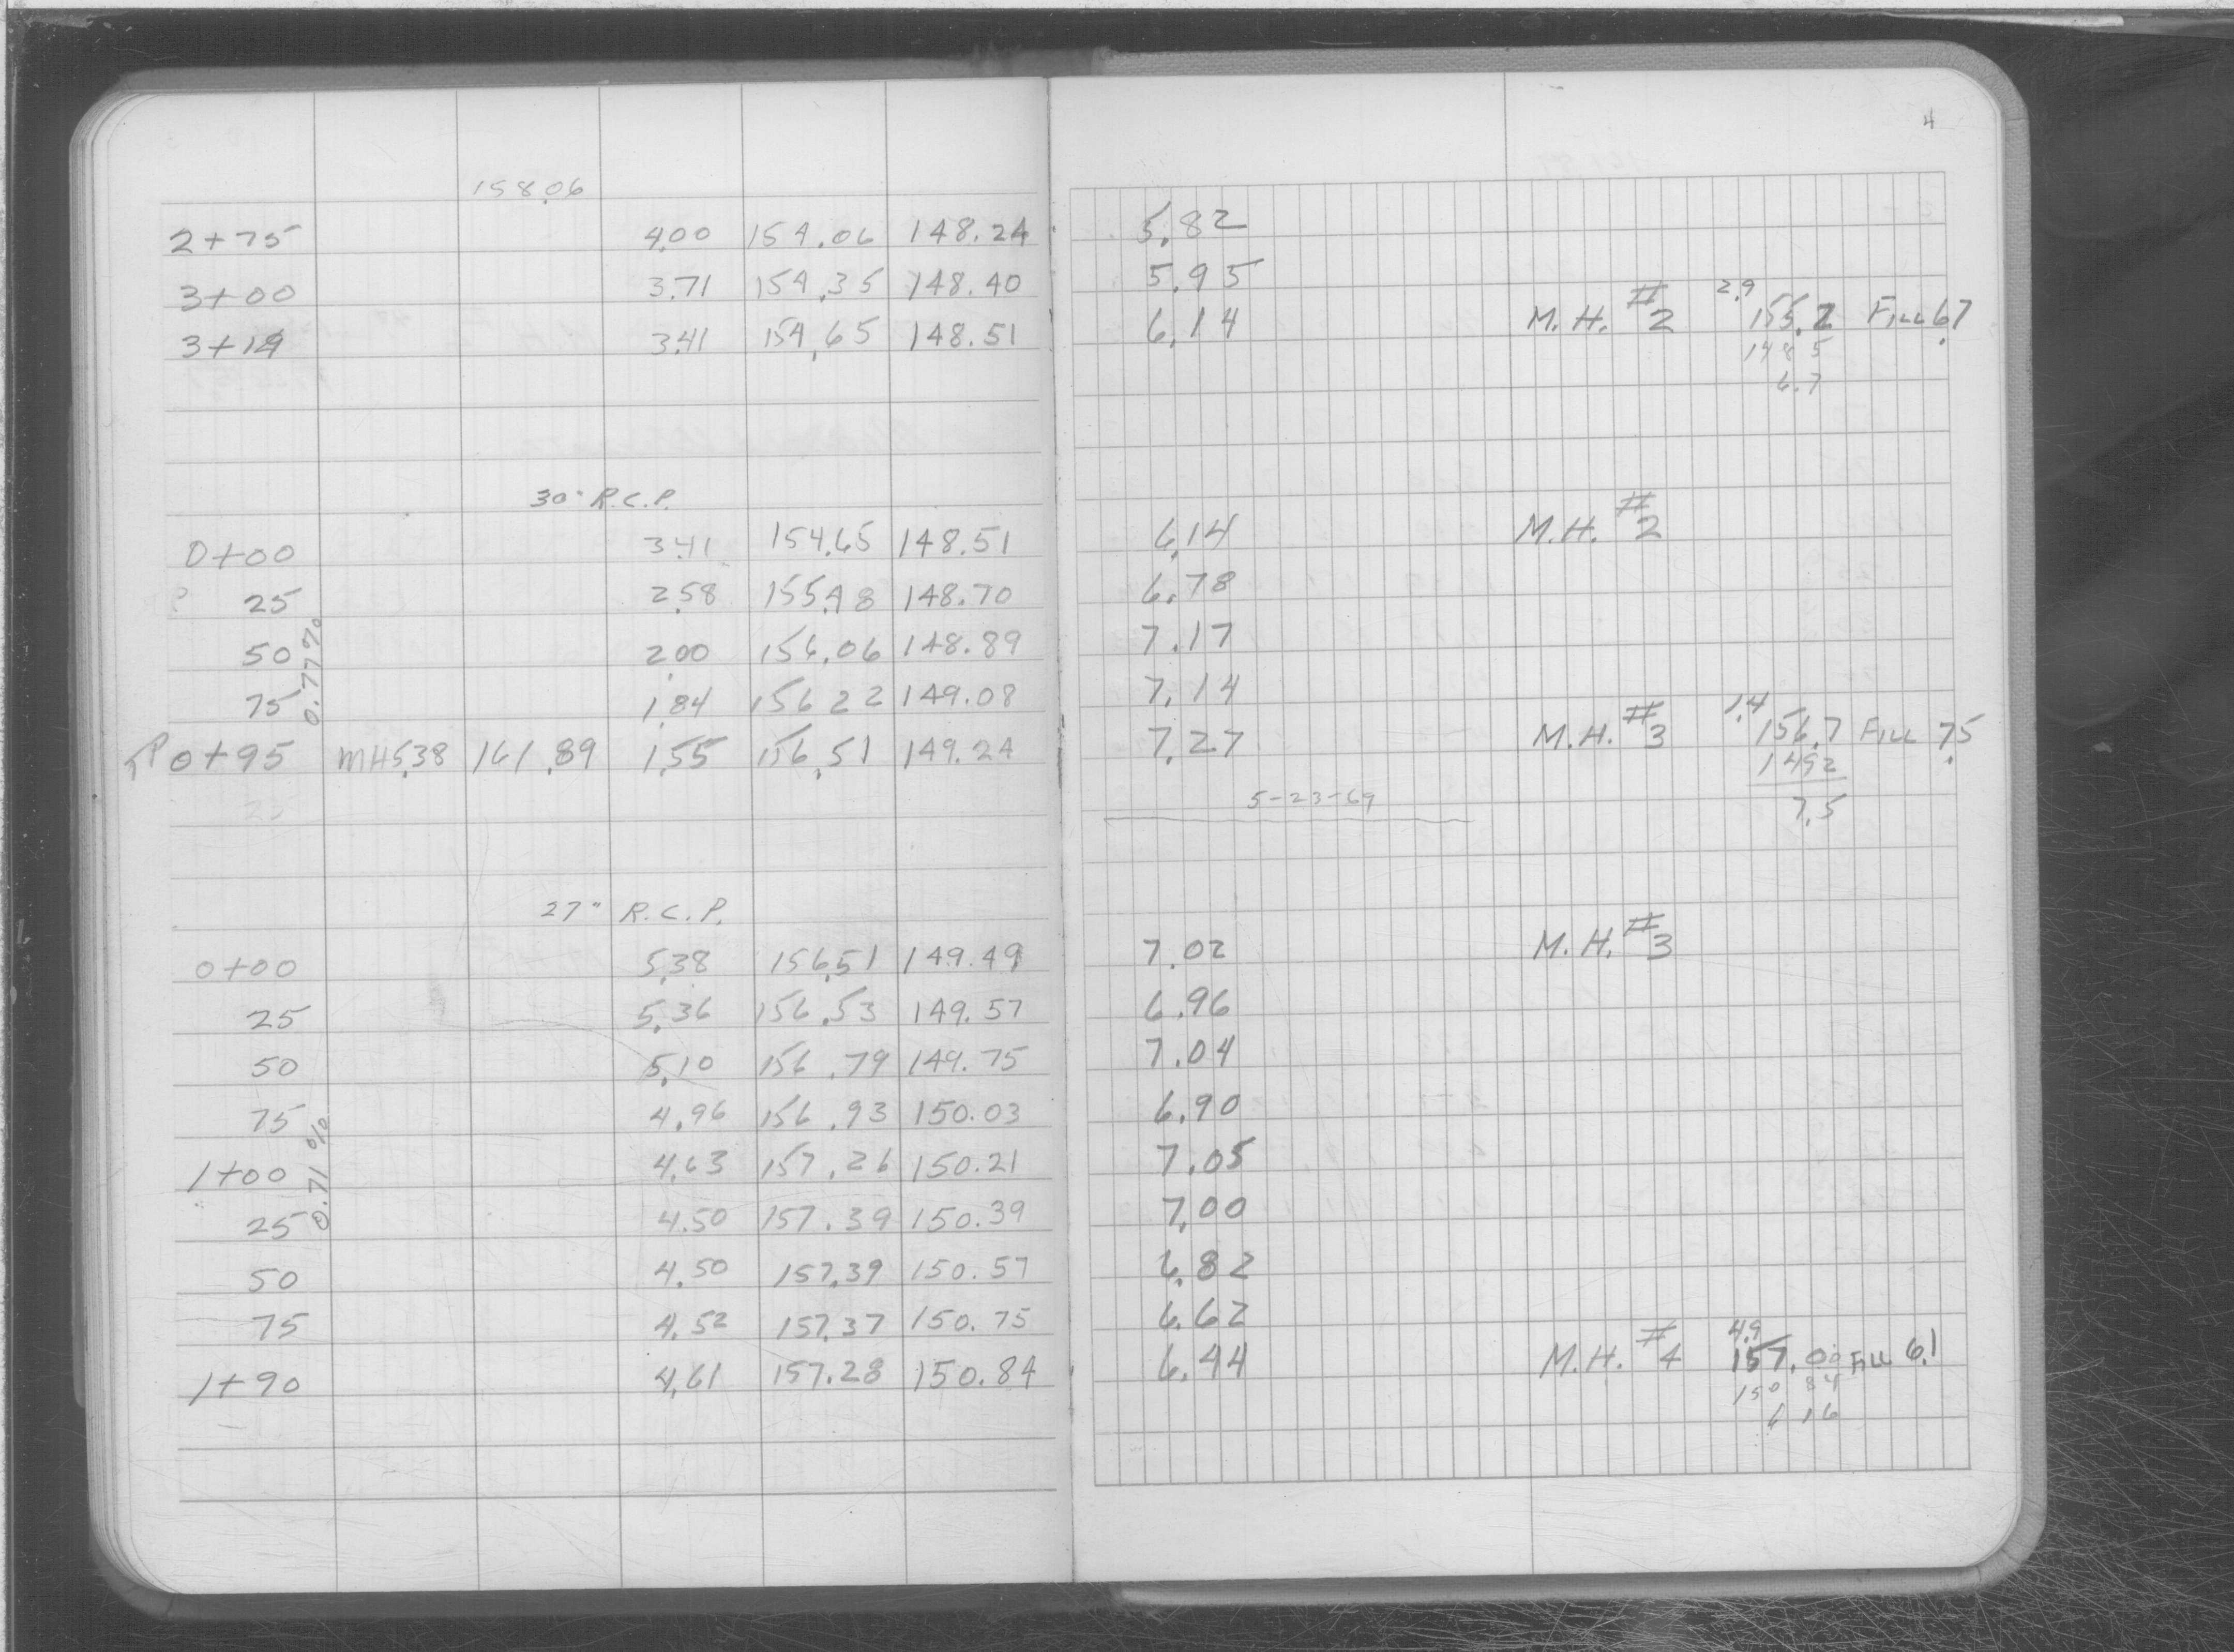 4
158.06
2+75 4.00 154.06 148.24 5.82
3+00 3.71 154.35 148.40 5.95
3+19 3.41 154.65 148.51 6.14 M.H. #2 2.9 155.2 Fill 6.7
148 5
6.7
30" R.C.P.
0+00 3.41 154.65 148.51 6.14 M.H. #2
25 2.58 155.48 148.70 6.78
50 2.00 156.06 148.89 7.17
75 1.84 156 22 149.08 7.14
0.77%
TP 0+95 MH 5.38 161.89 1.55 156.51 149.24 7.27 M.H. #3 1.4 156.7 Fill 7.5
149 2
5-23-69
7.5
27" R.C.P.
0+00 5.38 156.51 149.49 7.02 M.H. #3
25 5.36 156.53 149.57 6.96
50 5.10 156.79 149.75 7.04
75 4.96 156.93 150.03 6.90
1+00 4.63 157.26 150.21 7.05
0.71%
25 4.50 157.39 150.39 7.00
50 4.50 157.39 150.57 6.82
75 4.52 157.37 150.75 6.62
1+90 4.61 157.28 150.84 6.44 M.H. #4 4.9 157.00 Fill 6.1
150 84
6 16